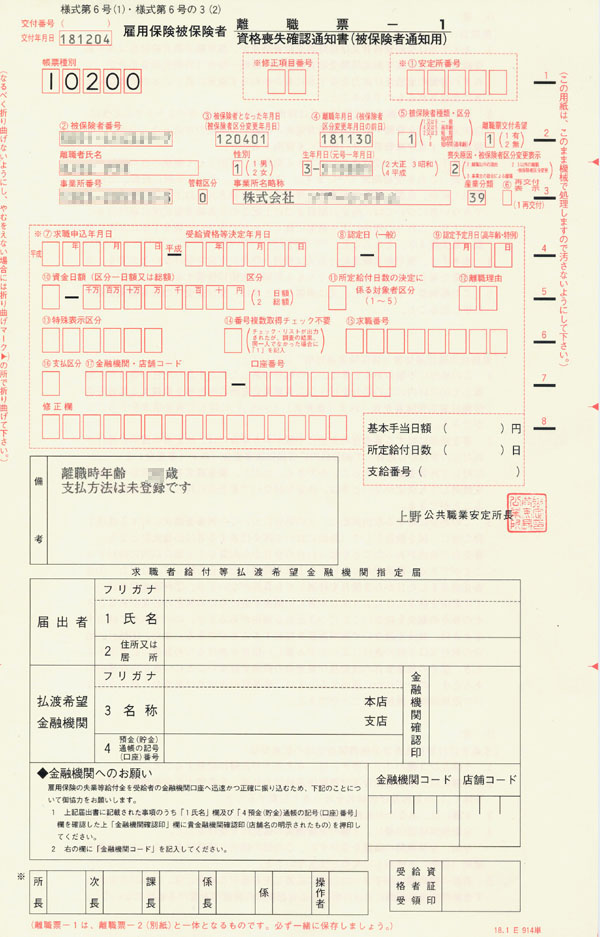 様式第6号(1)・様式第6号の3(2)
交付番号 ( )
交付年月日 181204
雇用保険被保険者 離職票－1
資格喪失確認通知書(被保険者通知用)
帳票種別
10200
※修正項目番号
※①安定所番号
1
②被保険者番号
③被保険者となった年月日
(被保険者区分変更年月日)
120401
④離職年月日 (被保険者
区分変更年月日の前日)
181130
⑤被保険者種類・区分
1
離職票交付希望
1 (1 有 2 無)
2
離職者氏名
性別
1 (1 男 2 女)
生年月日(元号－年月日)
3- (2 大正 3 昭和 4 平成)
喪失原因・被保険者区分変更表示
2
事業所番号
管轄区分
0
事業所名略称
株式会社
産業分類
39
⑥再交付表示
(1再交付)
3
※⑦求職申込年月日
平成 年 月 日
受給資格等決定年月日
平成 年 月 日
⑧認定日(一般)
⑨認定予定月日(高年齢・特例)
月 日
4
⑩賃金日額(区分－日額又は総額)
千万 百万 十万 万 千 百 十 円
区分
(1 日額 2 総額)
⑪所定給付日数の決定に
係る対象者区分
(1～5)
⑫離職理由
5
⑬特殊表示区分
⑭番号複数取得チェック不要
(チェック・リストが出力
されたが、調査の結果、
同一人でなかった場合に
「1」を記入)
⑮求職番号
6
⑯支払区分
⑰金融機関・店舗コード
口座番号
7
修正欄
8
基本手当日額 ( )円
所定給付日数 ( )日
支給番号 ( )
備考
離職時年齢 歳
支払方法は未登録です
上野 公共職業安定所長
求職者給付等払渡希望金融機関指定届
届出者
フリガナ
1 氏名
2 住所又は居所
払渡希望金融機関
フリガナ
3 名称
本店
支店
4 預金(貯金)通帳の記号(口座)番号
金融機関確認印
◆金融機関へのお願い
雇用保険の失業等給付金を受給者の金融機関口座へ迅速かつ正確に振り込むため、下記のことにつ
いて御協力をお願いします。
1 上記届出書に記載された事項のうち「1氏名」欄及び「4預金(貯金)通帳の記号(口座)番号」
欄を確認した上「金融機関確認印」欄に貴金融機関確認印(店舗名の明示されたもの)を押印し
てください。
2 右の欄に「金融機関コード」を記入してください。
金融機関コード
店舗コード
※
所長
次長
課長
係長
係
操作者
受給資格者証受領印
(離職票－1は、離職票－2(別紙)と一体となるものです。必ず一緒に保存しましょう。)
18.1 E 914単
(この用紙は、このまま機械で処理しますので汚さないようにして下さい。)
(なるべく折り曲げないようにし、やむをえない場合には折り曲げマーク▶の所で折り曲げて下さい。)